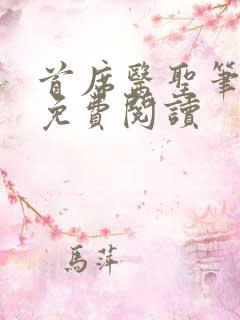 首席醫聖筆
免費閱讀
馬萍